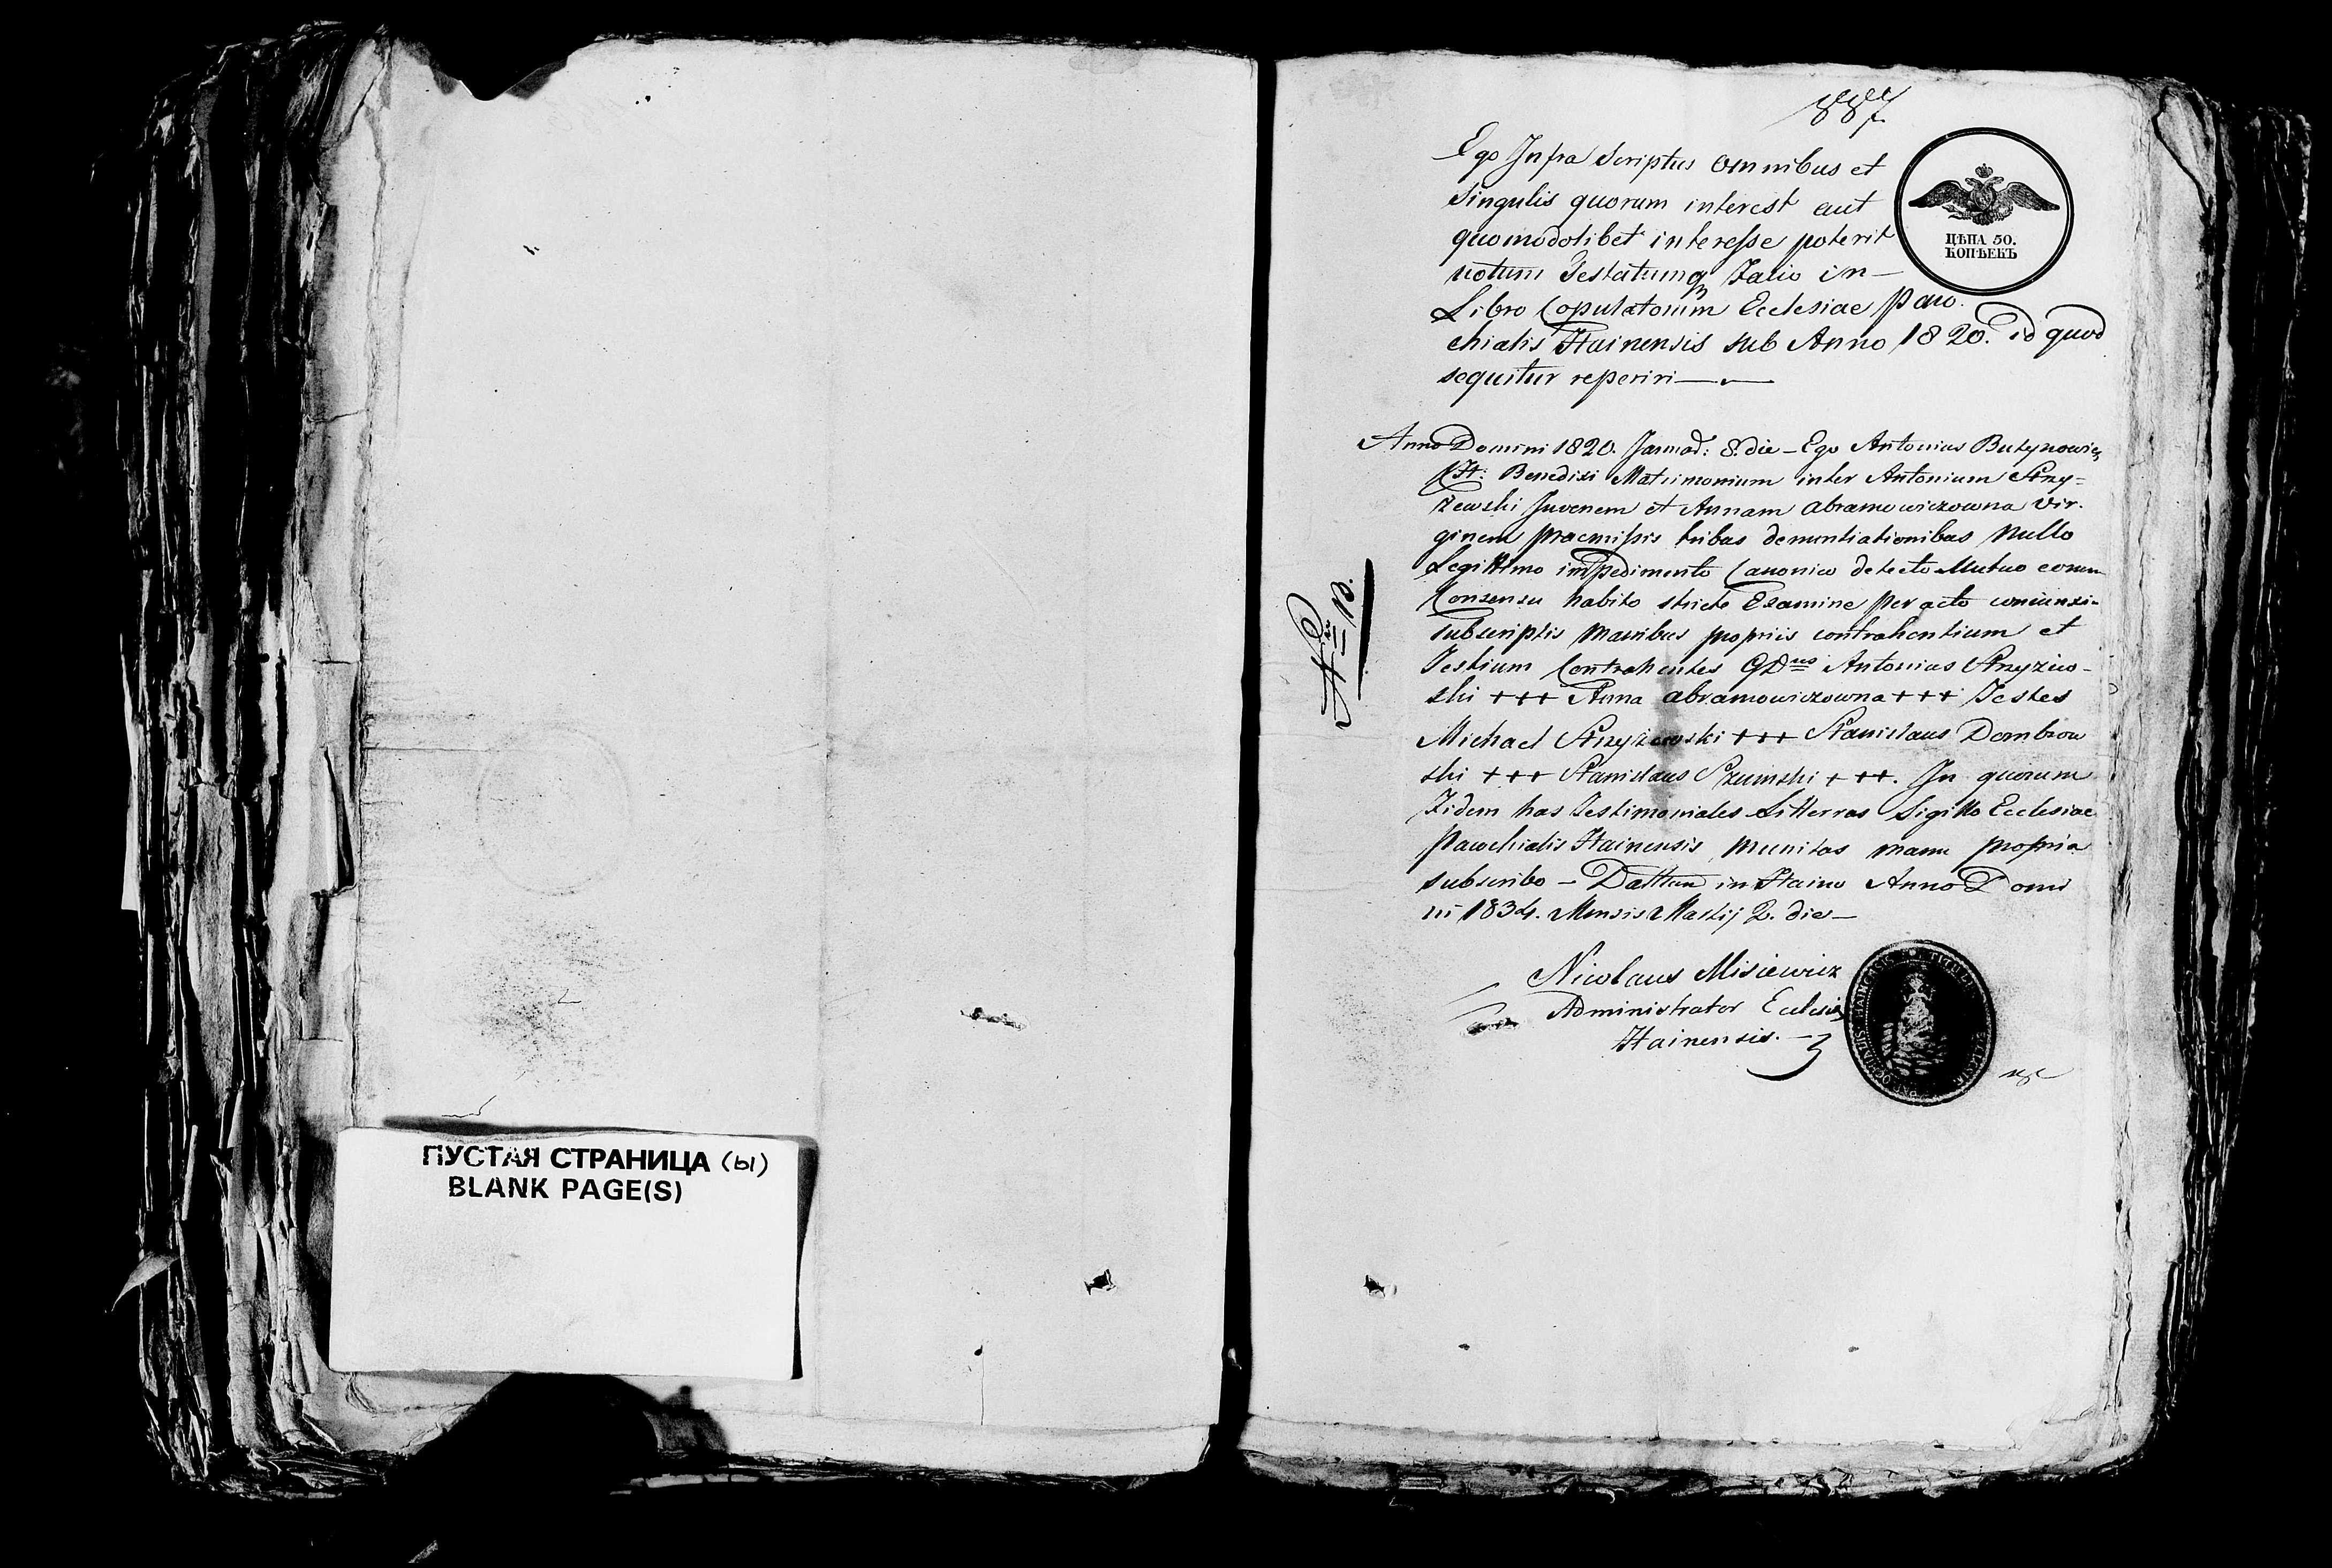 ПУСТАЯ СТРАНИЦА (ы)
BLANK PAGE(S)
887
Ego Infra Scriptus Omnibus et
Singulis quorum interest aut
quomodolibet interesse poterit
notum Testatumq3 Facio in
Libro Copulatorum Ecclesiae Paro
chialis Hainensis sub Anno 1820. id quod
sequitur reperiri
ЦѢНА 50.
КОПѢЕКЪ
Anno Domini 1820. 8. die – Ego Antonius Butynowicz
Benedixi Matrimonium inter Antonium Strzy=
żewski Juvenem et Annam Abramowiczowna Vir.
ginem praemissis tribus denuntiationibus Nullo
Legittimo impedimento Canonico detecto Mutuo eorum
Consensu habito stricto Examine peracto coniunxi
Subscriptis Manibus propriis contrahentium et
Testium Contrahentes Antonius Strzyzew-
ski +++ Anna Abramowiczowna +++ Testes
Michael Strzyżewski +++ Stanislaus Dombrow
ski +++ Stanislaus Szumski +++. In quorum
Fidem has Testimoniales Litterras Sigillo Ecclesiae
Parochialis Hainensis Munitas manu propria
subscribo – Dattum in Haino Anno Domi
ni 1834. Mensis Martij 2. die –
Nicolaus Misiewicz
Administrator Ecclesiae
Hainensis. –